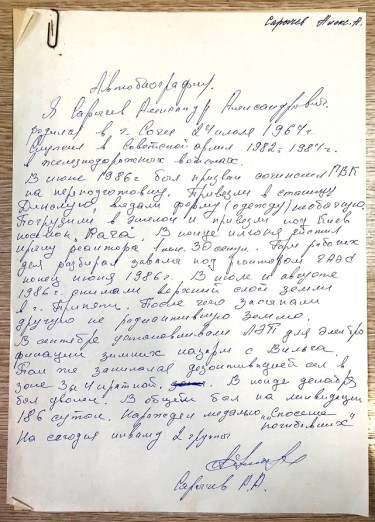 Сарычев Алекс. А.
Автобиография.
Я Сарычев Александр Александрович.
родился в г. Сочи 24 июля 1964 г.
Служил в Советской армии 1982г 1984г
в железнодорожных войсках.
В июне 1986г был призван сочинским ГВК
на переподготовку. Привезли в станицу
Динскую выдали форму (одежду)
Погрузили в эшелон и привезли под Киев
посёлок Рача. В конце июня
крышу реактора 1 мин. 30 секун. Там робоих
дел разбирал завалы под реактором ЧАЭС
конец июня 1986г. В июле и августе
1986г снимали верхний слой земли
в г. Припяти. После чего засыпали
другую не радиоактивную землю.
В сентябре устанавливали ЛЭП для электро
фикации зимних казарм с Вильча.
Там же занимался дезактивацией сел в
зоне 3х 4 кратной. В конце декабря
был уволен. В общем был на ликвидации
186 суток. Награжден медалью "Спасение
погибавших"
На сегодня инвалид 2 группы
Сарычев А.А.